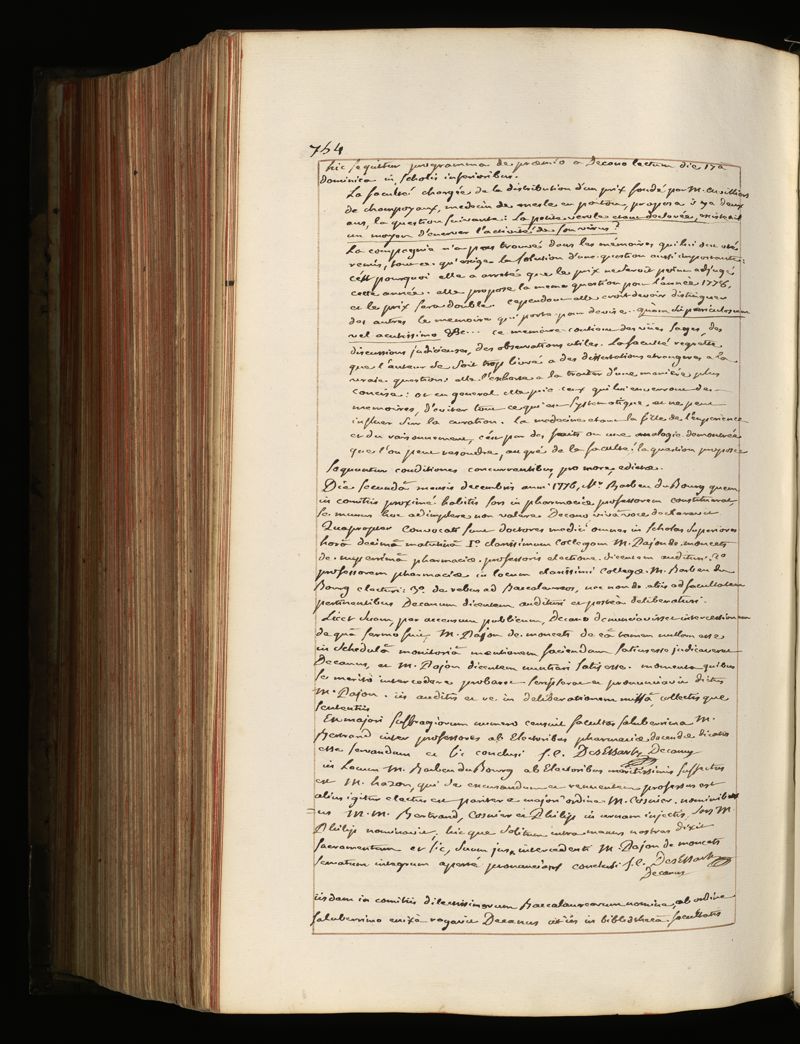 754
hic sequitur programma de præmio a Decano lectum die 17a
dominica in scholis inferioribus.
La faculté chargée de la distribution d'un prix fondé par M. Cusilliers
de champoyaux, medecin de mesle en poitou, proposa il y a deux
ans, la question suivante: La petite verole etant declarée, existe-il
un moyen d'enerver l'activité de son virus?
La compagnie n'a pas trouvé dans les mémoires qui lui ont été
remis, tout ce qu'exige la solution d'une question aussi importante:
c'est pourquoi elle a arreté que le prix ne seroit point adjugé
cette année. elle propose la meme question pour l'année 1778,
et le prix sera double. cependant elle croit devoir distinguer
des autres le memoire qui porte pour devise. quam dispariculosum
vel acutissimo &c... ce memoire contient des vües sages, des
discussions judicieuses, des observations utiles. La faculté regrette
que l'auteur se soit trop livré a des dissertations etrangeres a la
vraie question: elle l'exhorte a la traiter d'une maniere plus
concise: et en general elle prie ceux qui lui enverront des
memoires, d'eviter tout ce qui est systematique, et ne peut
influer sur la curation. la medecine etant la fille de l'experience
et du raisonnement, c'est par des faits ou une analogie demontrée
que l'on peut resoudre, au gré de la faculté, la question proposée
sequuntur conditiones concurrentibus, pro more, edictæ.
Die secundâ mensis decembris anni 1776, Mr Barbeu du Bourg quem
in comitiis proximè habitis sors in pharmaciæ professorem constituerat,
se munus hoc adimplere non valere Decano vivâ voce declaravit
Quapropter Convocati sunt doctores medici omnes in scholas superiores
horâ decimâ matutinâ 1o clarissimum collegam M. Dajon de moncets
de nuperrimâ pharmaciæ professoris electione dicentem audituri: 2o
professorem pharmaciæ in locum clarissimi collegæ M. Barbeu du
Bourg electuri: 3o. de rebus ad Baccalaureos, nec non de aliis ad facultatem
pertinentibus Decanum dicentem audituri et postea deliberaturi.
Licet suam, per accensum publicum, Decano denunciavisset intercessionem
de quâ sermo fuit, M. Dajon de moncets de eâ tamen nullam esse
in schedulâ monitoriâ mentionem faciendam satius esse judicaverat
Decanus, et M. Dajon dicentem nuntiari satis esse. momenta quibus
se meritò intercedere probaret scripserat et pronunciavit dictus
M. Dajon. iis auditis et re in deliberationem missâ, collectisque
sententiis
Ex majori suffragiorum numero censuit facultas saluberrima M.
Bertrand inter professores ab Electoribus pharmaciæ docendæ dicatos
esse servandum et sic conclusi f.l. DesEssartz Decanus
in Locum M. Barbeu du Bourg ab Electoribus meritissimis suffectus
est M. hazon, qui se excusandum et renuentem professus est
alius igitur electus est pariter e majori ordine M. Cosnier. nominibus
us M.M. Bertrand, Cosnier et Philip in urnam injectis, sors M.
Philip nominavit, hicque solitum intra manus nostras dixit
sacramentum et sic, suum jus intercedenti M. Dajon de moncets
servatum integrum apertè pronuncians conclusi f.l. DesEssartz
Decanus
iisdem in comitiis dilectissimorum Baccalaureorum nomine, ab ordine
saluberrimo enixè rogavit Decanus ut iis in bibliotheca facultatis